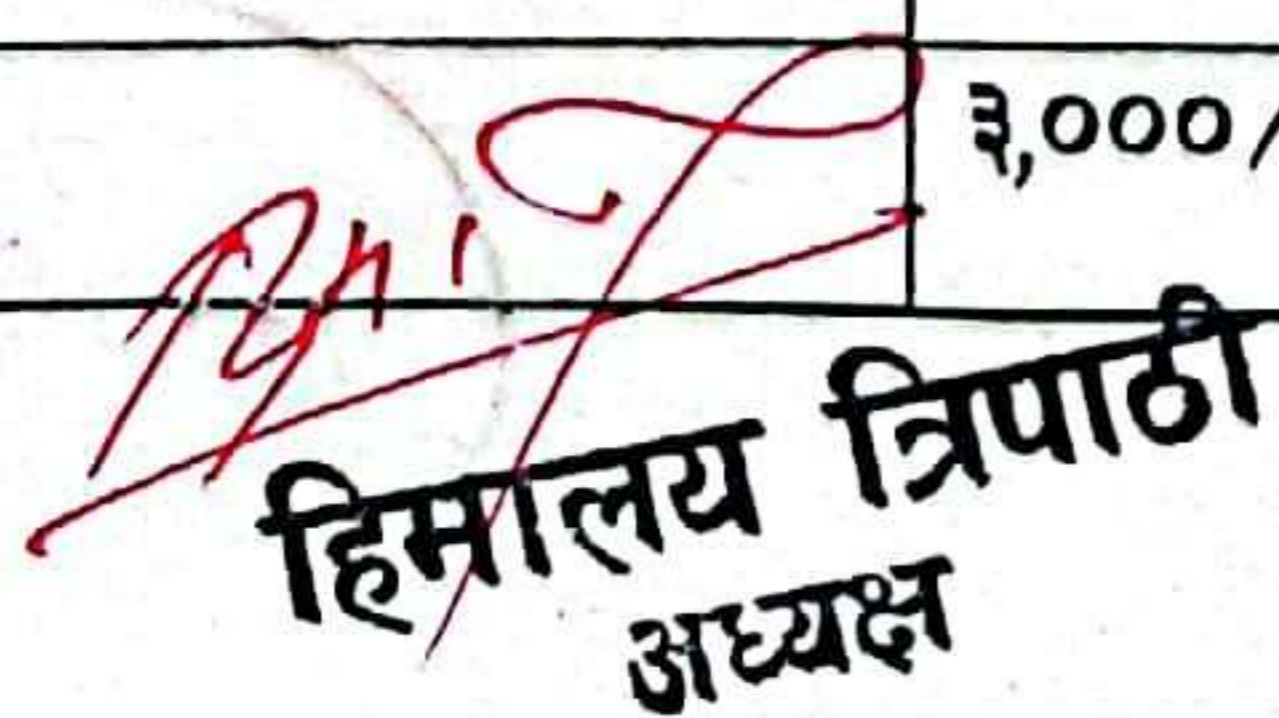 ३,०००/
हिमालय त्रिपाठी
अध्यक्ष